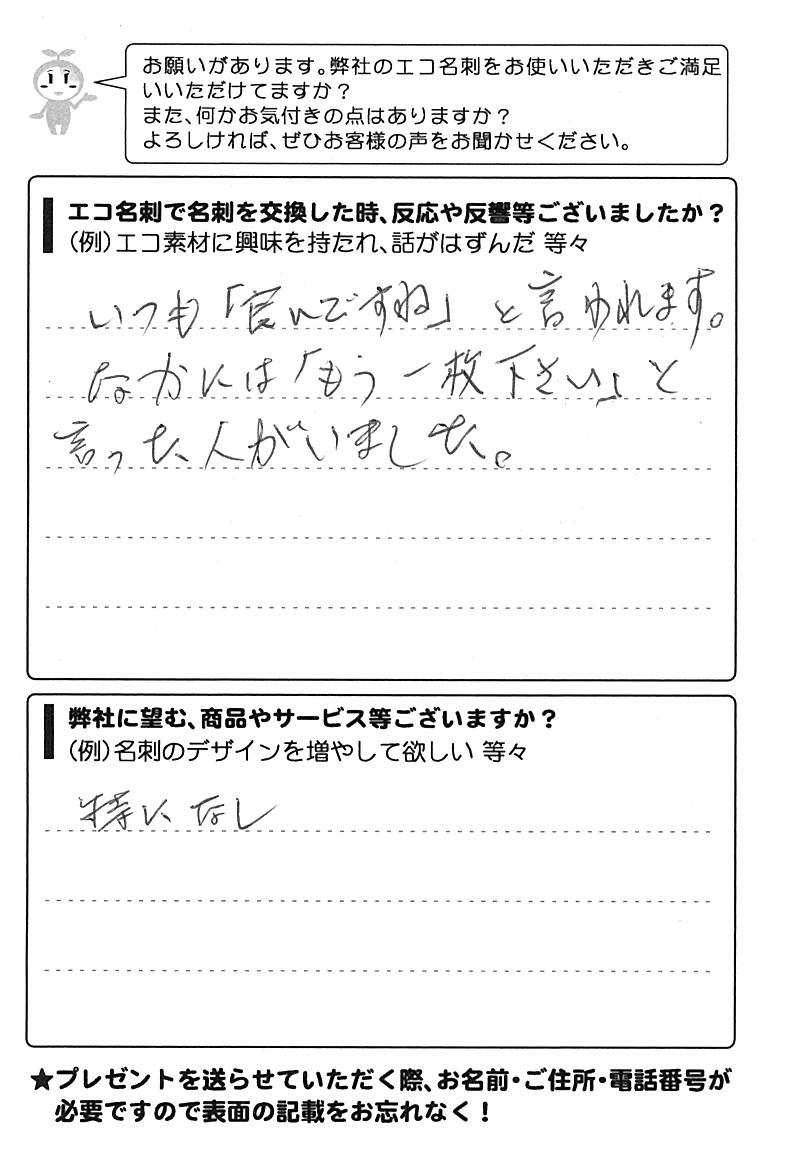 お願いがあります。弊社のエコ名刺をお使いいただきご満足
いいただけてますか？
また、何かお気付きの点はありますか？
よろしければ、ぜひお客様の声をお聞かせください。
エコ名刺で名刺を交換した時、反応や反響等ございましたか？
（例）エコ素材に興味を持たれ、話がはずんだ 等々
いつも「 んですね」と言われます。
なかには「もう一枚下さい」と
言った人がいました。
弊社に望む、商品やサービス等ございますか？
（例）名刺のデザインを増やして欲しい 等々
特になし
★プレゼントを送らせていただく際、お名前・ご住所・電話番号が
必要ですので表面の記載をお忘れなく！